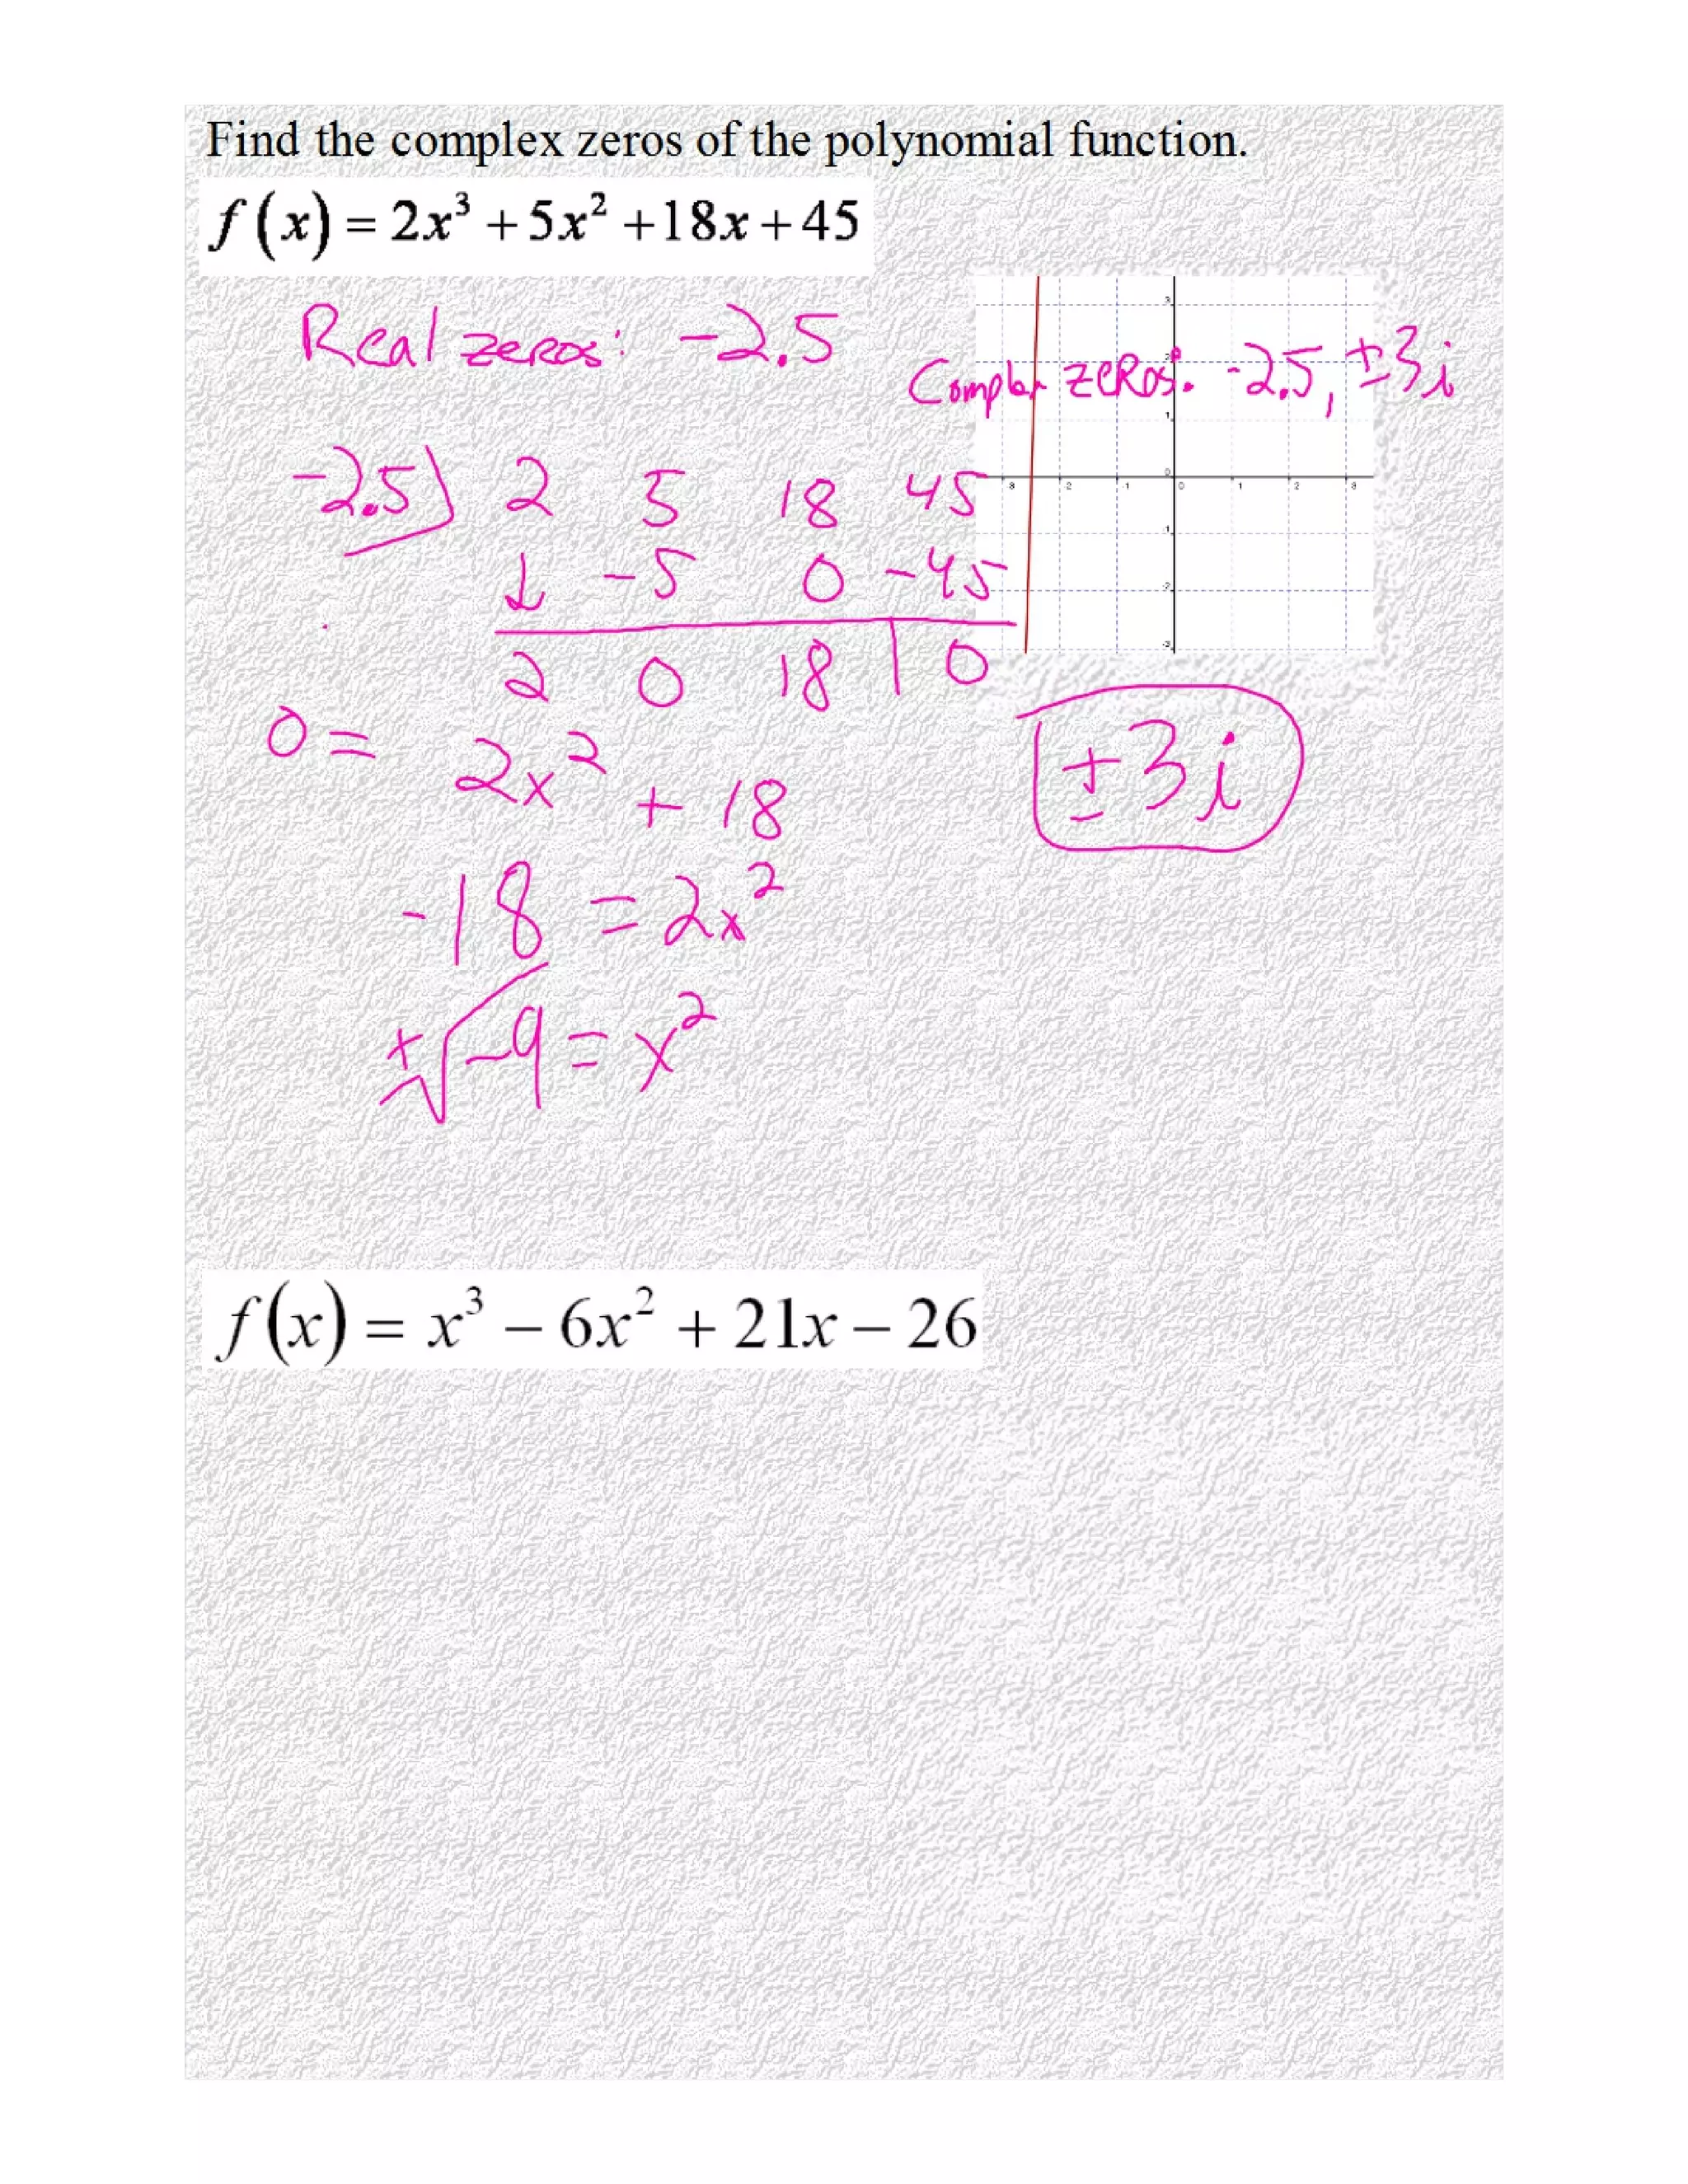 Find the complex zeros of the polynomial function.
f(x) = 2x³ + 5x² + 18x + 45
Real zeros: -2.5
Complex zeros: -2.5, ±3i
-2.5) 2 5 18 45
↓ -5 0 -45
2 0 18 | 0
0 = 2x² + 18
±3i
-18 = 2x²
±√-9 = x²
f(x) = x³ − 6x² + 21x − 26